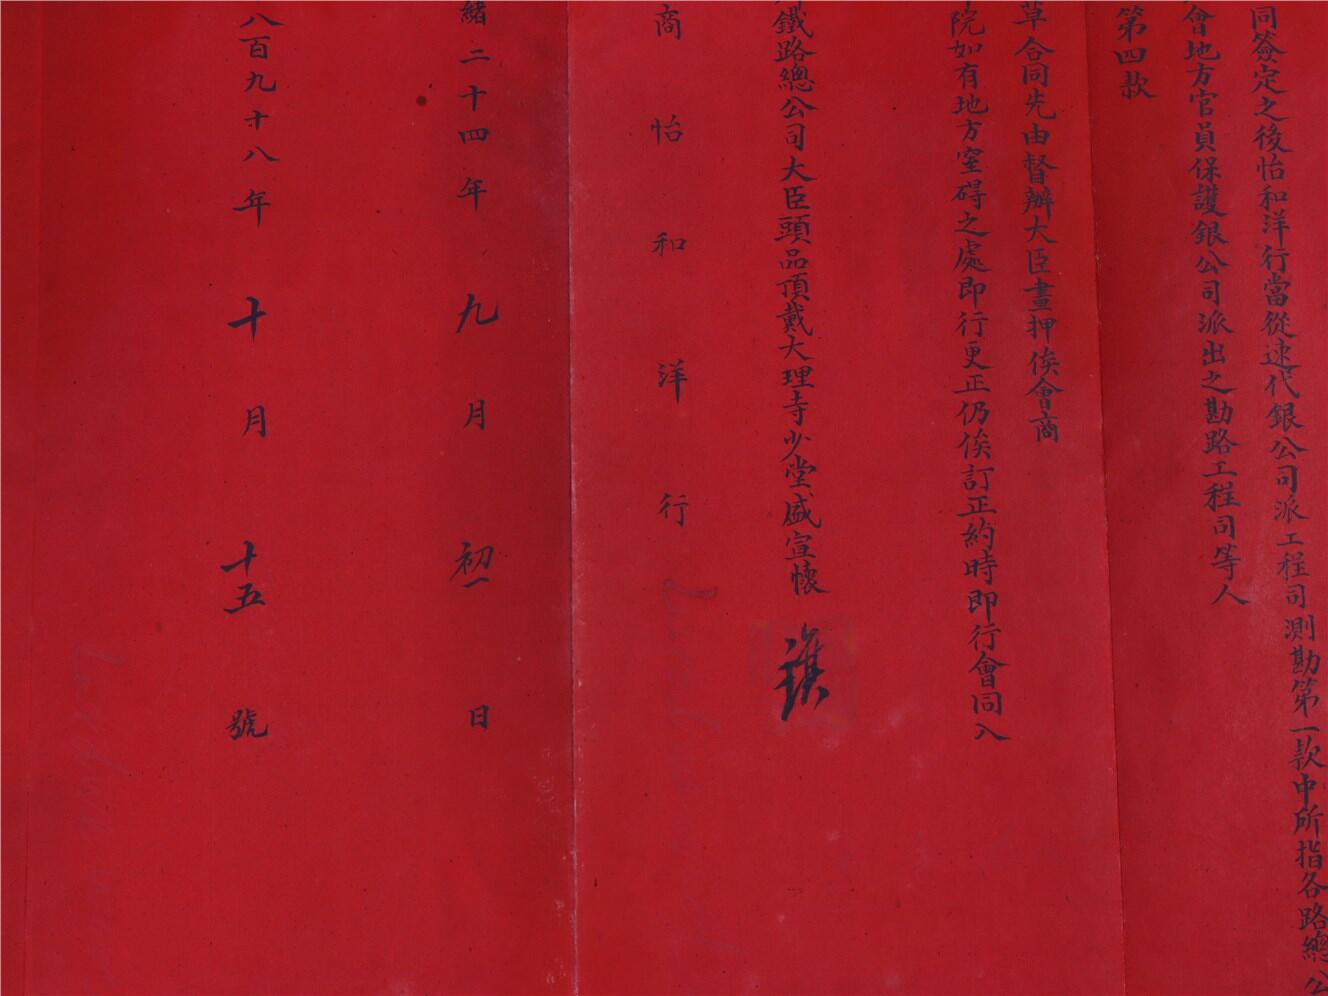 同簽定之後怡和洋行當從速代銀公司派工程司測勘第一款中所指各路總公
會地方官員保護銀公司派出之勘路工程司等人
第四款
草合同先由督辦大臣畫押俟會商
院如有地方窒碍之處即行更正仍俟訂正約時即行會同入
鐵路總公司大臣頭品頂戴大理寺少堂盛宣懷
商怡和洋行
緒二十四年九月初一日
八百九十八年十月十五號